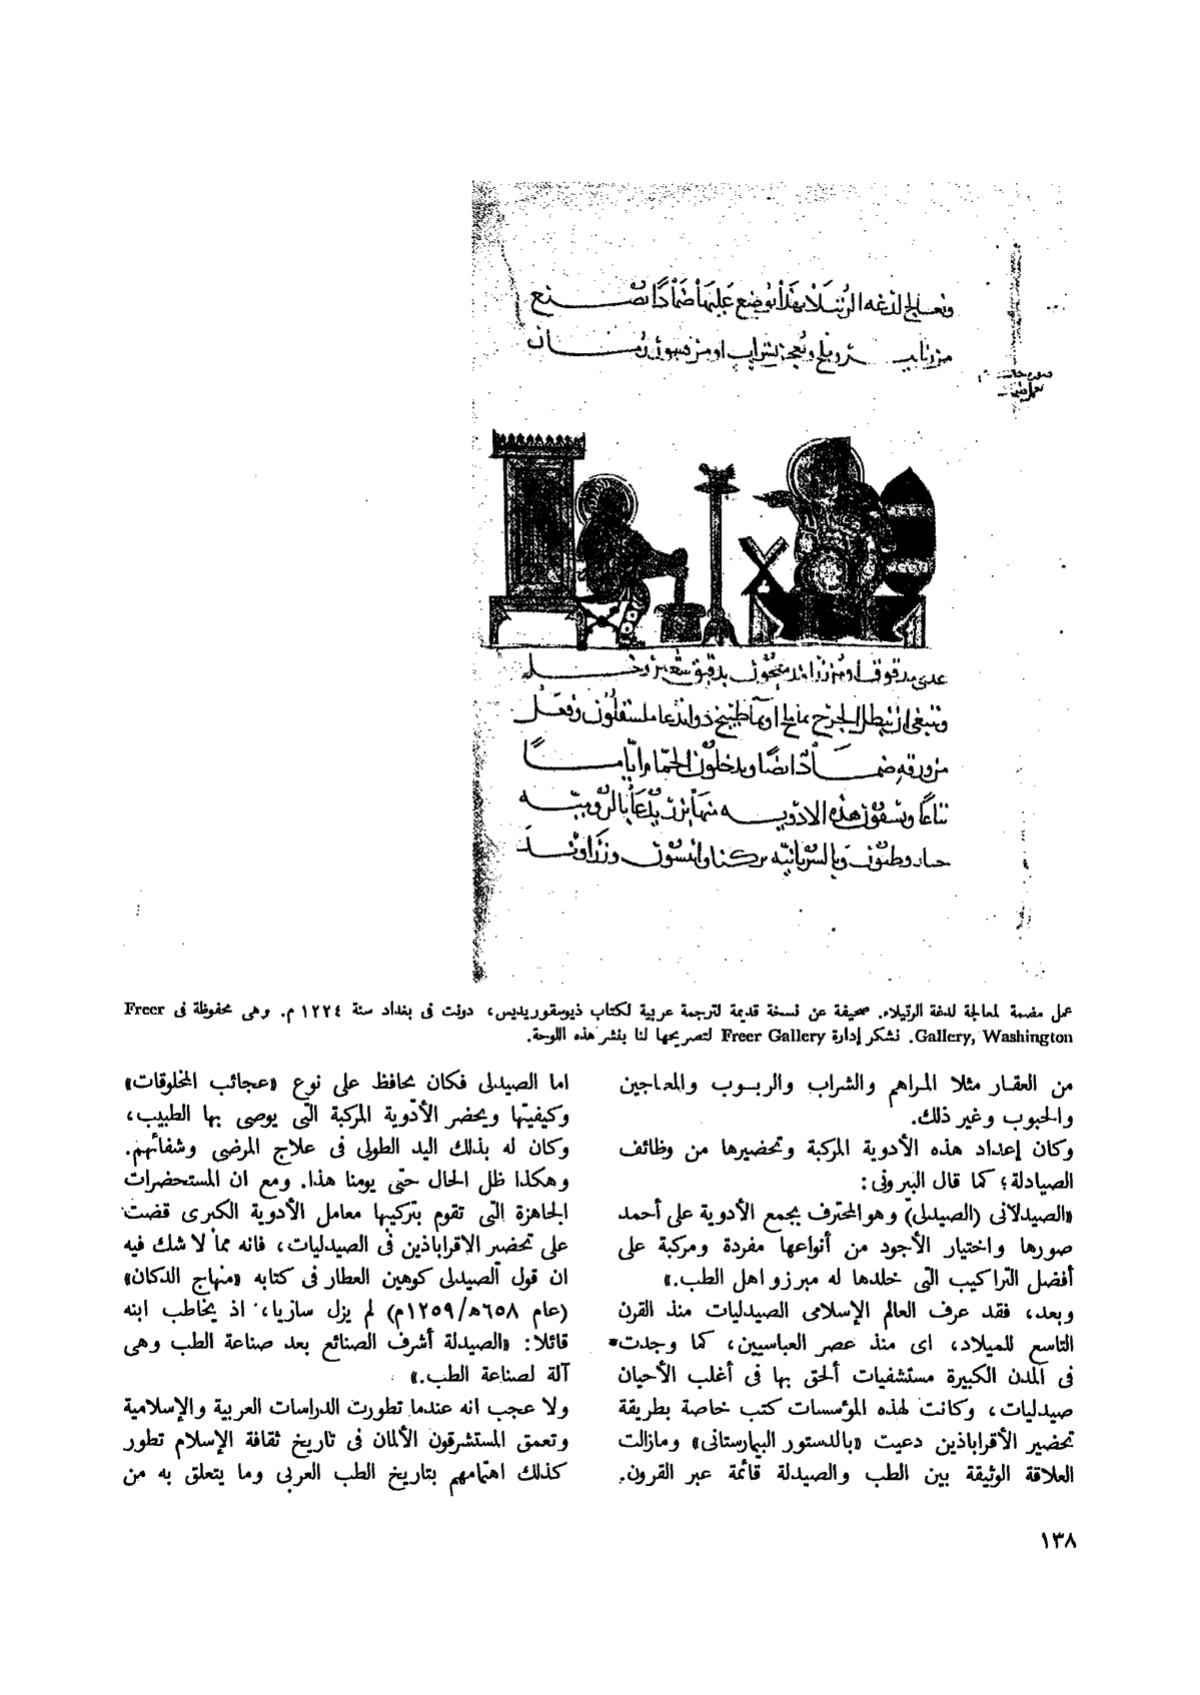 وتعالج لدغه الرتيلا بهذا يوضع عليها ضمادا يصنع
او من
صوره
دقوقا او من زراوند معجون بدقيق شعير وخل
وينبغى ان يبطل الجرح بما مالح او بما طبيخ
من ورقه ضمادا ايضا ويدخلون الحمام اياما
تباعا ويسقون هذه الادويه منها بزر يدعا بالروميه
وبالسريانيه وانيسون وزراوند
عمل مضمة لمعالجة لدغة الرتيلاء. صحيفة عن نسخة قديمة لترجمة عربية لكتاب ذيوسقوريديس، دونت فى بغداد سنة ١٢٢٤ م. وهى محفوظة فى Freer
Gallery, Washington. نشكر إدارة Freer Gallery لتصريحها لنا بنشر هذه اللوحة.
من العقار مثلا المراهم والشراب والربوب والمعاجين
والحبوب وغير ذلك.
وكان إعداد هذه الأدوية المركبة وتحضيرها من وظائف
الصيادلة؛ كما قال البيرونى:
«الصيدلانى (الصيدلى) وهو المحترف بجمع الأدوية على أحمد
صورها واختيار الأجود من أنواعها مفردة ومركبة على
أفضل التراكيب التى خلدها له مبرزو اهل الطب.»
وبعد، فقد عرف العالم الإسلامى الصيدليات منذ القرن
التاسع للميلاد، اى منذ عصر العباسيين، كما وجدت
فى المدن الكبيرة مستشفيات ألحق بها فى أغلب الأحيان
صيدليات، وكانت لهذه المؤسسات كتب خاصة بطريقة
تحضير الأقراباذين دعيت «بالدستور البيمارستانى» ومازالت
العلاقة الوثيقة بين الطب والصيدلة قائمة عبر القرون.
اما الصيدلى فكان يحافظ على نوع «عجائب المخلوقات»
وكيفيتها ويحضر الأدوية المركبة التى يوصى بها الطبيب،
وكان له بذلك اليد الطولى فى علاج المرضى وشفائهم.
وهكذا ظل الحال حتى يومنا هذا. ومع ان المستحضرات
الجاهزة التى تقوم بتركيبها معامل الأدوية الكبرى قضت
على تحضير الاقراباذين فى الصيدليات، فانه مما لا شك فيه
ان قول الصيدلى كوهين العطار فى كتابه «منهاج الدكان»
(عام ٦٥٨ھ/١٢٥٩م) لم يزل ساريا، اذ يخاطب ابنه
قائلا: «الصيدلة أشرف الصنائع بعد صناعة الطب وهى
آلة لصناعة الطب.»
ولا عجب انه عندما تطورت الدراسات العربية والإسلامية
وتعمق المستشرقون الألمان فى تاريخ ثقافة الإسلام تطور
كذلك اهتمامهم بتاريخ الطب العربى وما يتعلق به من
١٣٨